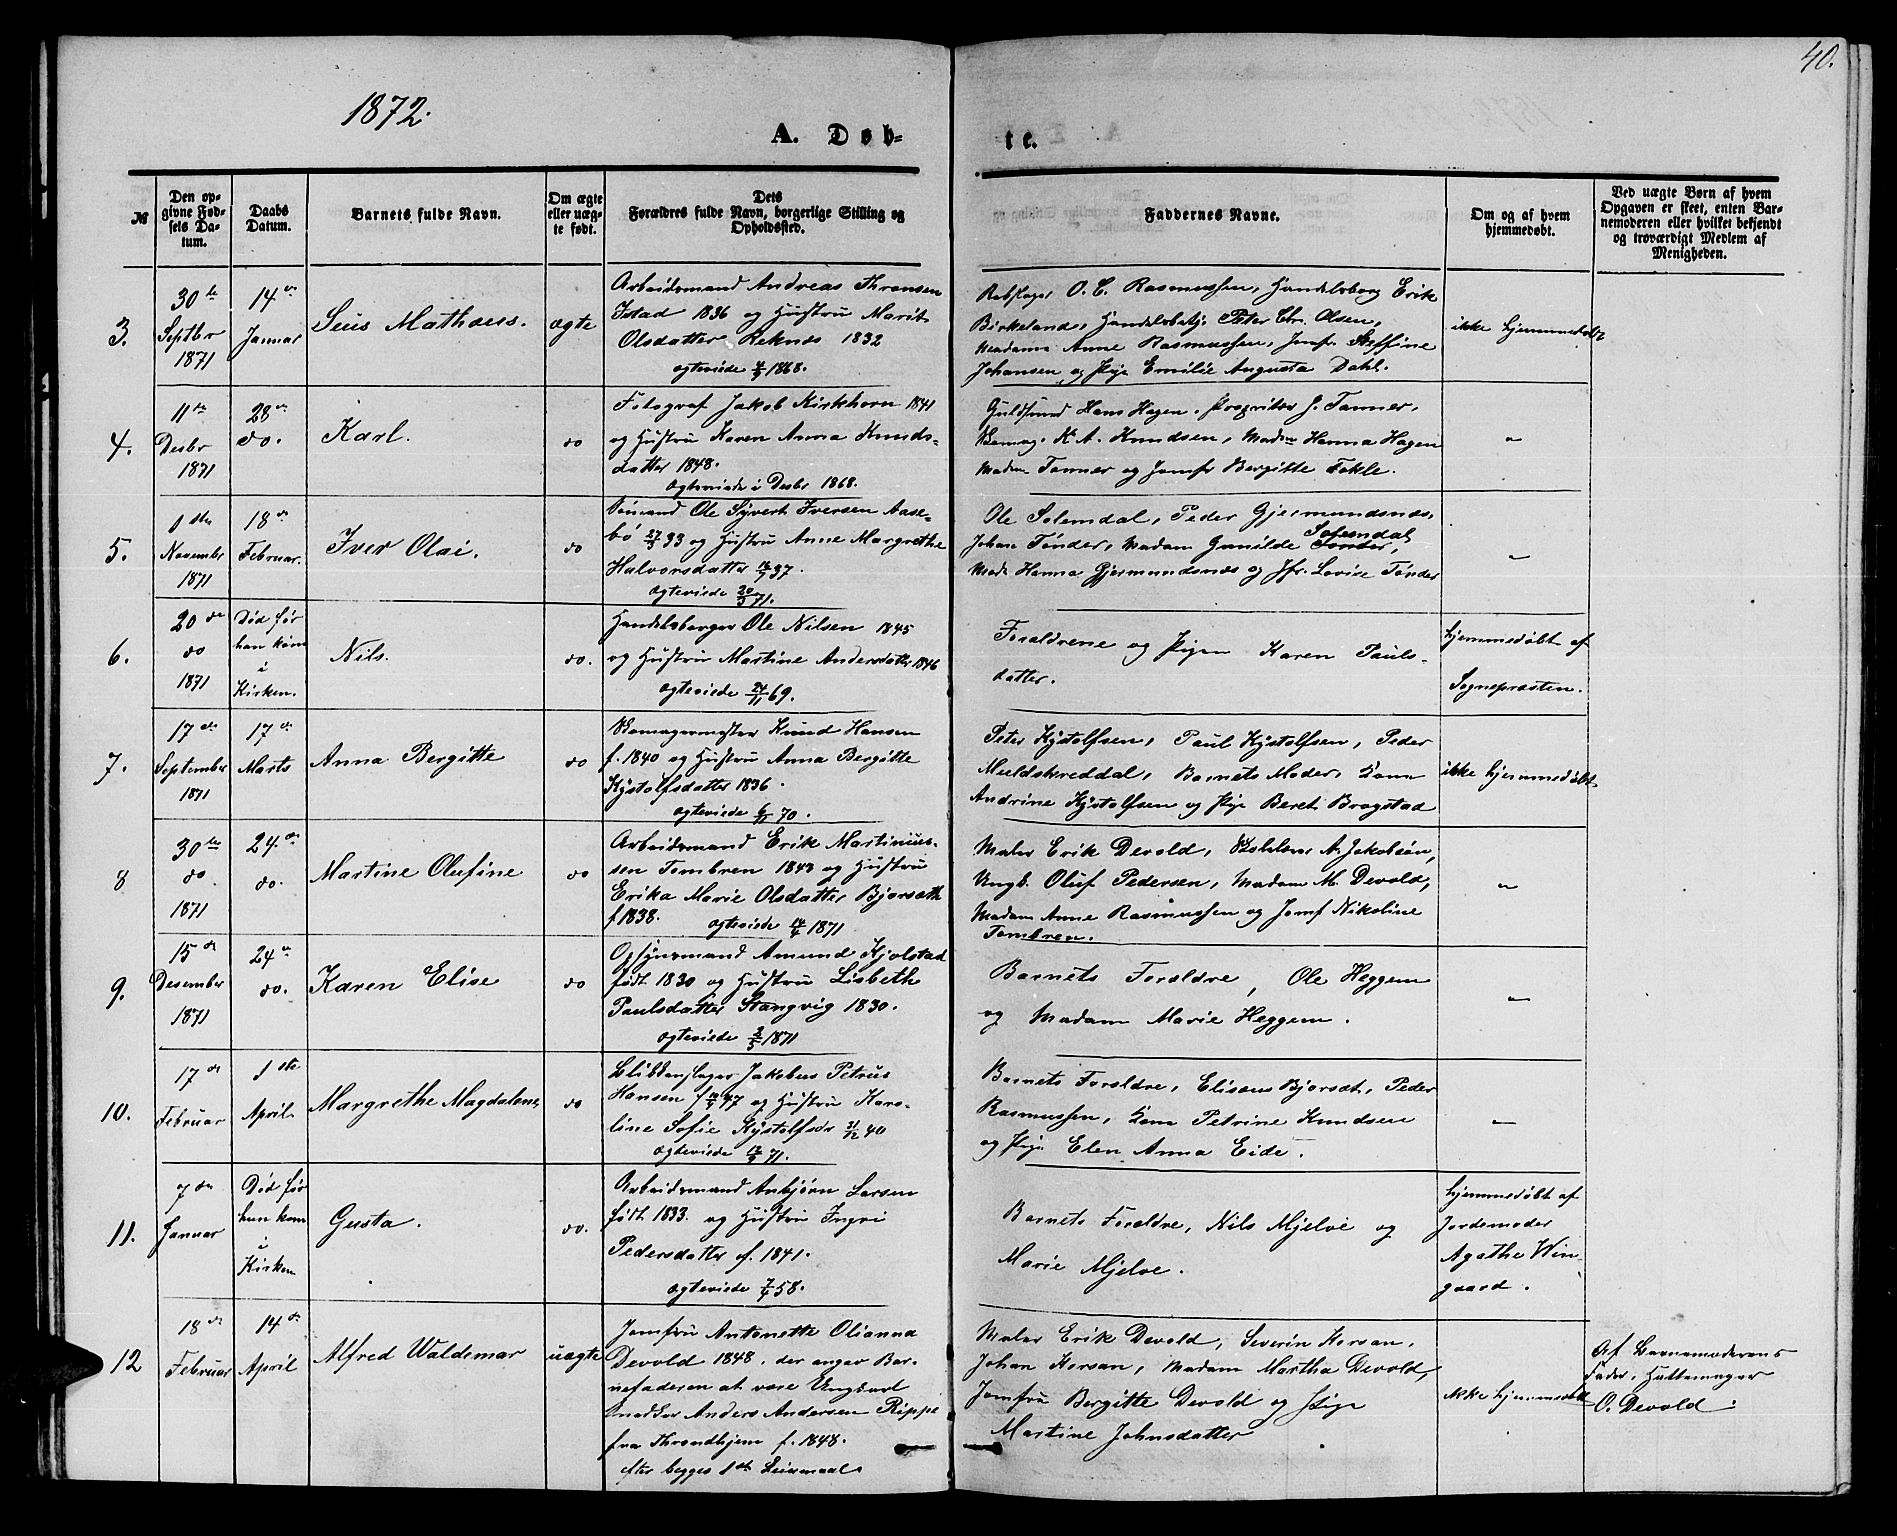 40.
1872.
A. Døb-
te.
№
Den op-
givne Fød-
sels Da-
tum.
Daabs
Datum.
Barnets fulde Navn.
Om ægte
eller uæg-
te født.
Dets
Forældres fulde Navn, borgerlige Stilling og
Opholdssted.
Faddernes Navne.
Om og af hvem
hjemmedøbt.
Ved uægte Børn af hvem
Opgaven er skeet, enten Bar-
nemoderen eller hvilket bekjendt
og troværdigt Medlem af
Menigheden.
3.
30te
Septbr
1871
14de
Januar
Sius Mathæus.
ægte
Arbeidsmand Andreas Thronsen
Istad 1836 og Hustru Marit
Olsdatter Reknes 1832
ægteviede 1868.
Rebslager O. C. Rasmussen, Handelsborg Erik
Birkeland, Handelsbetj. Peter Chr. Olsen,
Madama Anne Rasmussen, Jomfr Steffine
Johansen og Pige Emilie Augusta Dahl.
ikke hjemmedøbt
4.
11te
Desbr
1871
28de
do.
Karl.
do
Fotograf Jakob Kirkhorn 1841
og Hustru Karen Anna Knuds-
datter 1848.
ægteviede i Desbr 1868.
Guldsmed Hans Hagen, Proprietær J. Tanner,
K. A. Knudsen, Madm Hanna Hagen
Madm Tanner og Jomfr Bergitte Fokle.
"
5.
1ste
November
1871
18de
Februar.
Iver Olai.
do
Sømand Ole Syvert Iversen Aase-
bø 27/5 33 og Hustru Anne Margrethe
Halvorsdatter 16/7 37.
ægteviede 20/3 71.
Ole Solemdal, Peder Gjermundsnes,
Johan Tønder, Madam Gunilde Solemdal
Madm Hanna Gjermundsnæs og Jfr. Lovise Tønder
"
6.
20de
do
1871
Død før
han kom
i
Kirken.
Nils.
do.
Handelsborger Ole Nilsen 1845
og Hustru Martine Andersdatter 1846
ægteviede 24/11 69.
Forældrene og Pigen Karen Pauls-
datter.
hjemmedøbt af
Sognepræsten.
7.
17de
September
1871
17de
Marts
Anna Bergitte
do
Skomagermester Knud Hansen
f. 1840 og Hustru Anna Bergitte
Kystolfsdatter 1836.
ægteviede 6/11 70.
Peter Kystolfsen, Paul Kystolfsen, Peder
Mieldskreddal, Barnets Moder, Kone
Andrine Kystolfsen og Pige Beret Bragstad
ikke hjemmedøbt
8
30te
do
1871
24de
do.
Martine Olufine
do
Arbeidsmand Erik Martinius-
sen Tombren 1843 og Hustru
Erika Marie Olsdatter Bjorsæth
f. 1838. ægteviede 14/4 1871
Maler Erik Devold, A. Jakobsøn,
Ungk. Oluf Pedersen, Madam M. Devold,
Madam Anne Rasmussen og Jomf Nikoline
Tombren.
"
9.
15de
Desember
1871
24de
do.
Karen Elise
do
Opsynsmand Amund Kjølstad
født 1830 og Hustru Lisbeth
Paulsdatter Stangvig 1830.
ægteviede 2/5 1871
Barnets Forældre, Ole Heggem
og Madam Marie Heggem.
"
10.
17de
Februar
1ste
April
Margrethe Magdalene,
do
Blikkenslager Jakobus Petrus
Hansen f 47 og Hustru Karo-
line Sofie Kystolfsdr 31/12 40
ægteviede 71.
Barnets Forældre, Elisæus Bjorsæt, Peder
Rasmussen, Kone Petrine Knudsen
og Pige Elen Anna Eide.
"
11.
7de
Januar
Død før
hun kom
i
Kirken
Gusta.
do.
Arbeidsmand Anbjørn Larsen
født 1833. og Hustru Ingri
Pedersdatter f. 1841.
ægteviede 7/4 58.
Barnets Forældre, Nils Mjelve og
Marie Mjelve.
hjemmedøbt af
Jordemoder
Agathe Win-
gaard.
12
18de
Februar
14de
April
Alfred Waldemar
uægte
Jomfru Antonette Olianna
Devold 1848. der angav Bar-
nefaderen at være Ungkarl
Snedker Anders Andersen Rippe
fra Throndhjem f. 1848.
efter begges 1ste Leiermaal
Maler Erik Devold, Severin Korsan,
Johan Korsan, Madam Martha Devold,
Jomfru Bergitte Devold og Pige
Martine Johnsdatter
ikke hjemmedøbt
Af Barnemoderens
Fader, Hattemager
O. Devold.